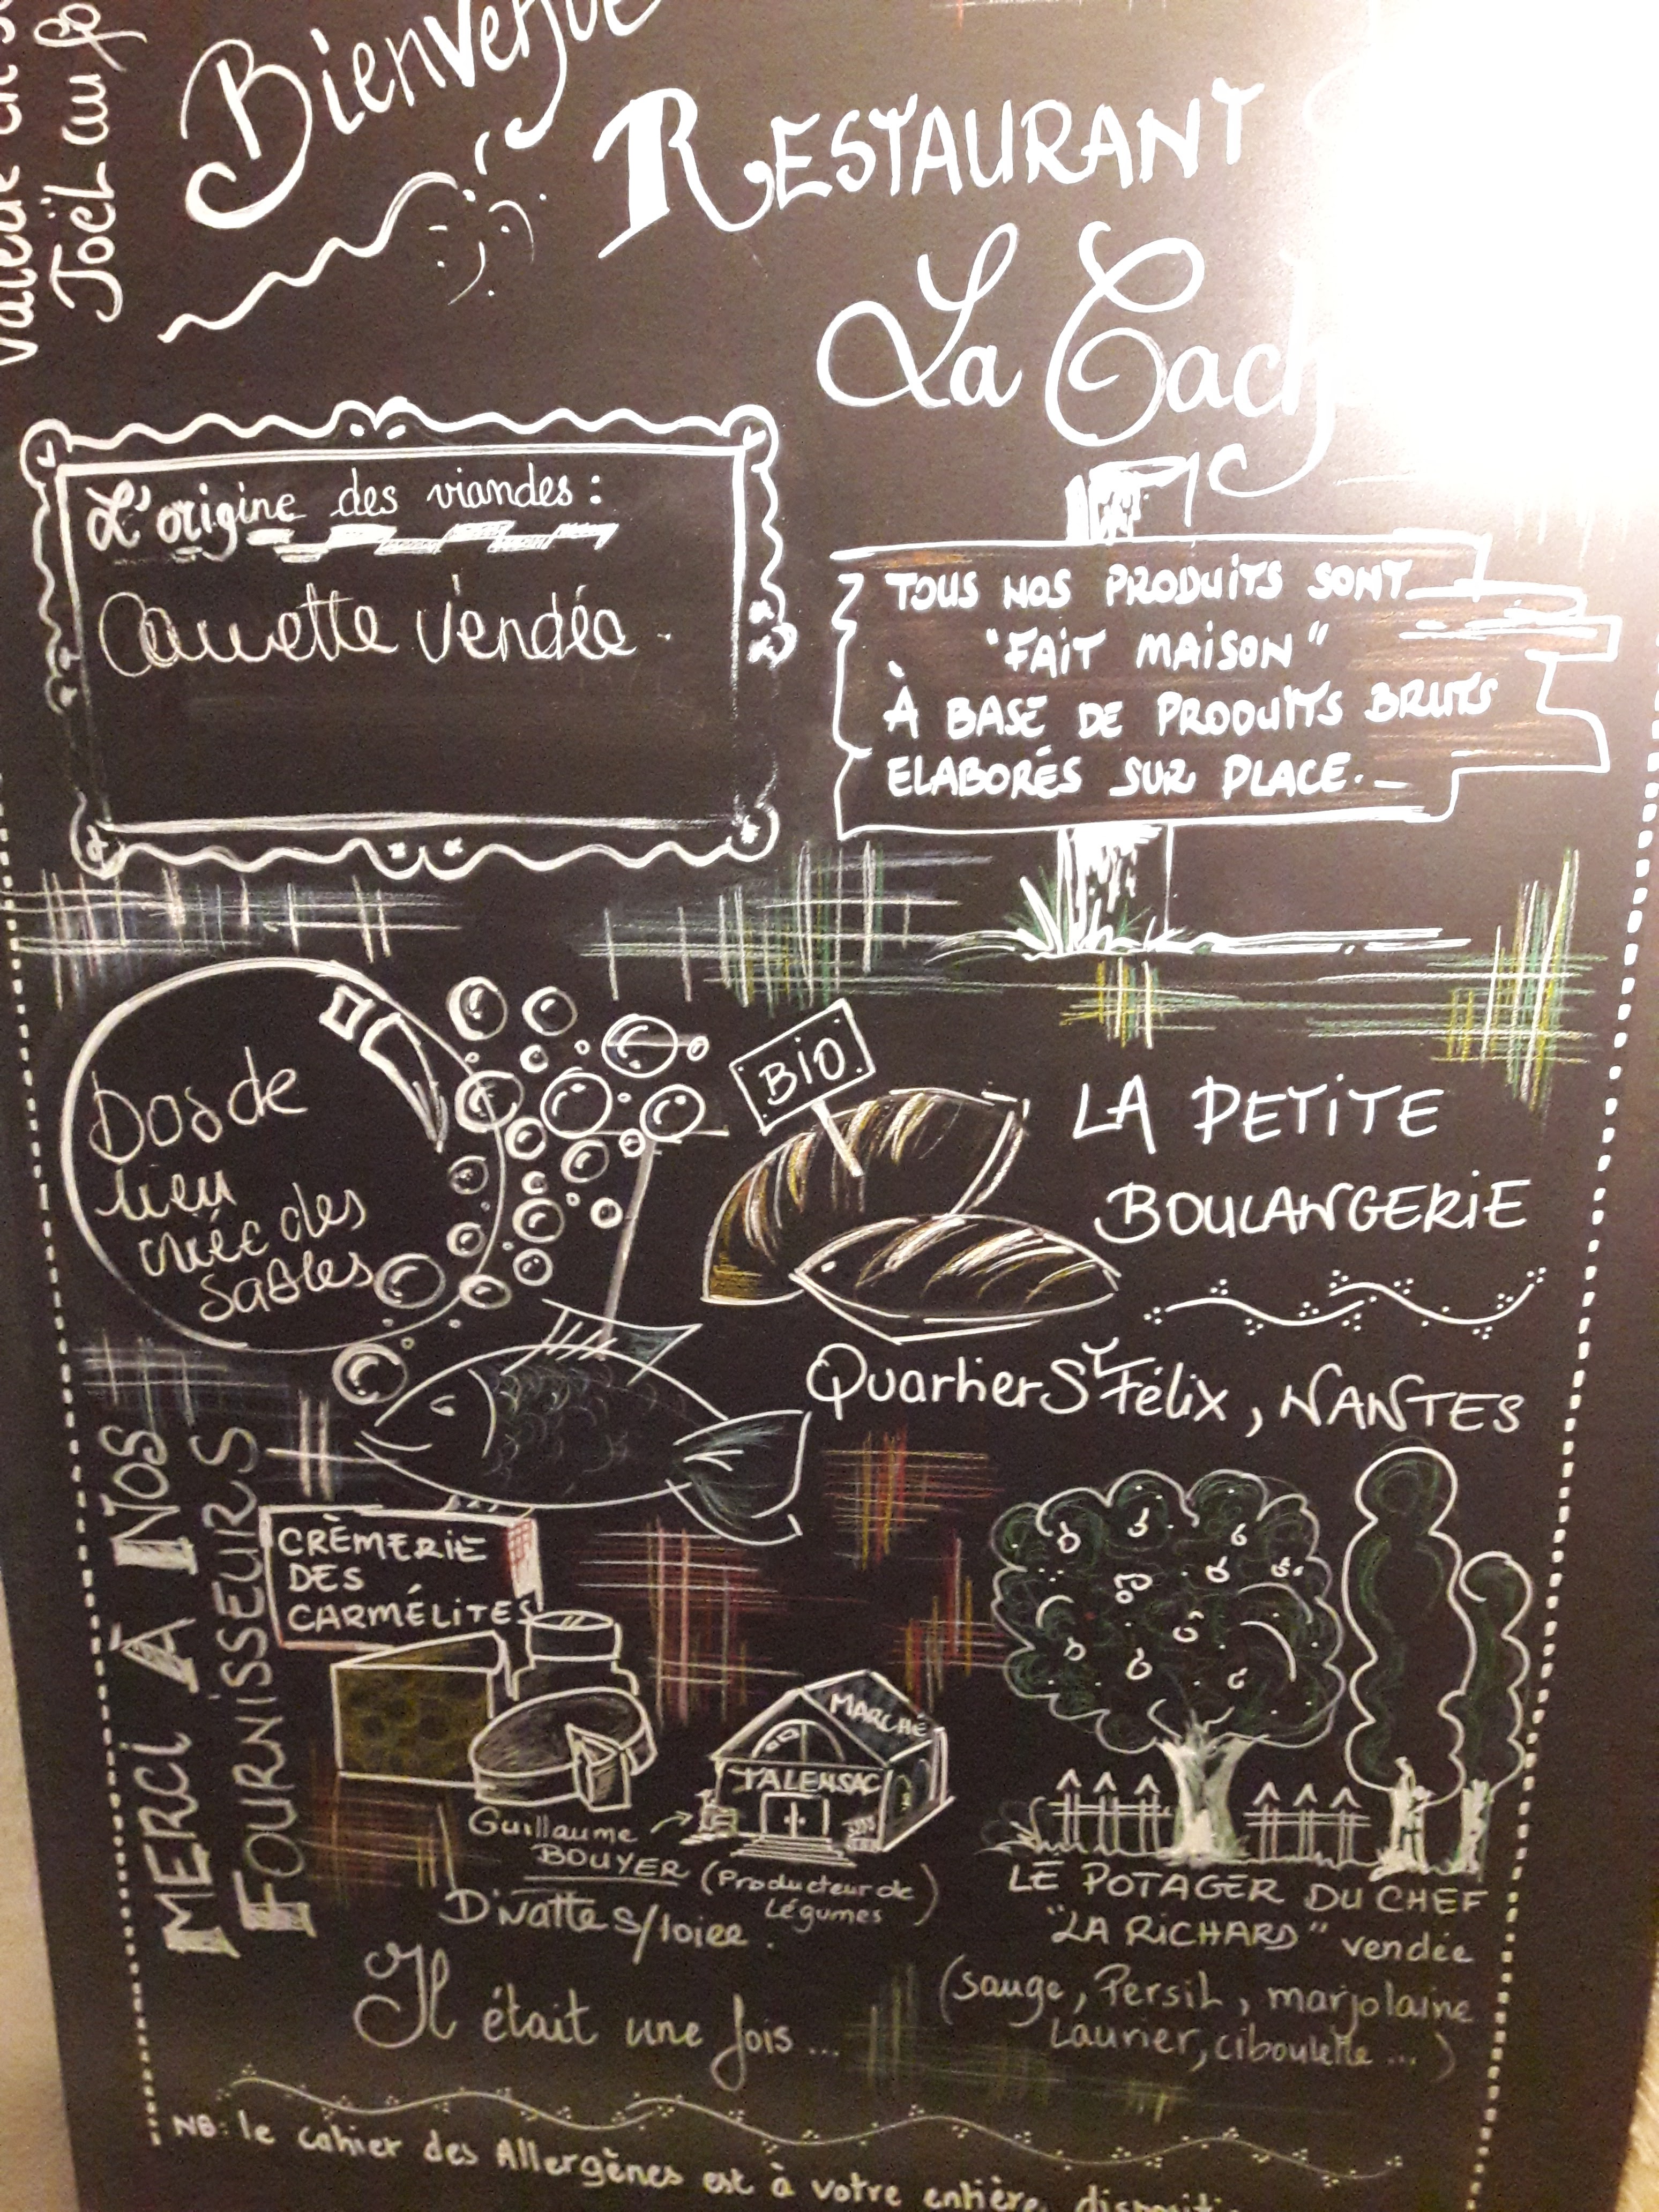 Bienvenue
RESTAURANT
La Cach
Joël au
L'origine des viandes :
Canette Vendée.
TOUS NOS PRODUITS SONT
"FAIT MAISON"
À BASE DE PRODUITS BRUTS
ELABORÉS SUR PLACE.
Dos de
lieu
des
Sables
BIO
LA PETITE
BOULANGERIE
Quartier St Félix, NANTES
MERCI À NOS
FOURNISSEURS
CRÈMERIE
DES
CARMÉLITES
MARCHÉ
TALENSAC
Guillaume
BOUYER (Producteur de
Légumes)
Divatte s/loire.
LE POTAGER DU CHEF
"LA RICHARD" vendée
(sauge, Persil, marjolaine
Laurier, ciboulette ...)
Il était une fois ...
NB: le cahier des Allergènes est à votre entière